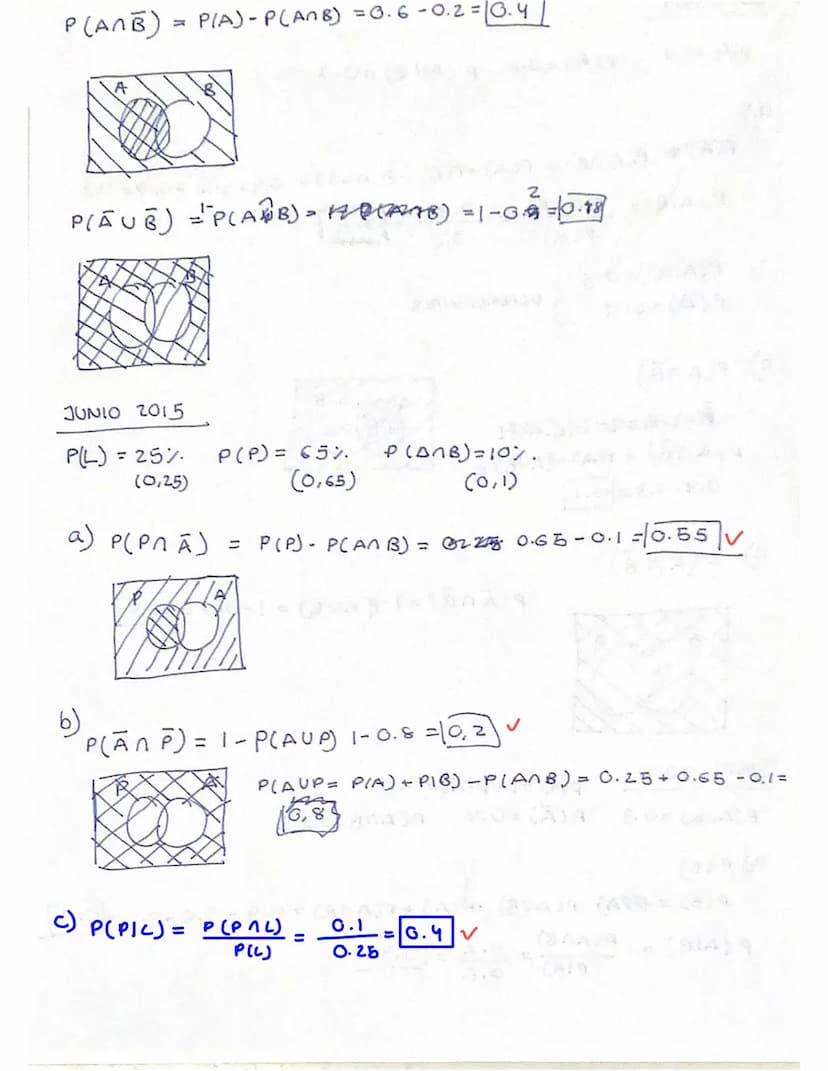 P(A∩B̄) = P(A) - P(A∩B) = 0.6 - 0.2 = 0.4
A B
P(Ā∪B̄) = 1-P(A∩B) = = 1-0.2 = 0.98
A B
JUNIO 2015
P(L) = 25%. P(P) = 65%. P(A∩B) = 10%.
(0,25) (0,65) (0,1)
a) P(P∩Ā) = P(P) - P(A∩B) = 0.65 - 0.1 = 0.55 ✓
P A
b) P(Ā∩P̄) = 1 - P(A∪P) 1-0.8 = 0,2 ✓
P A
P(A∪P = P(A) + P(B) - P(A∩B) = 0.25 + 0.65 - 0.1 =
0,8
c) P(P|L) = P(P∩L) / P(L) = 0.1 / 0.25 = 0.4 ✓